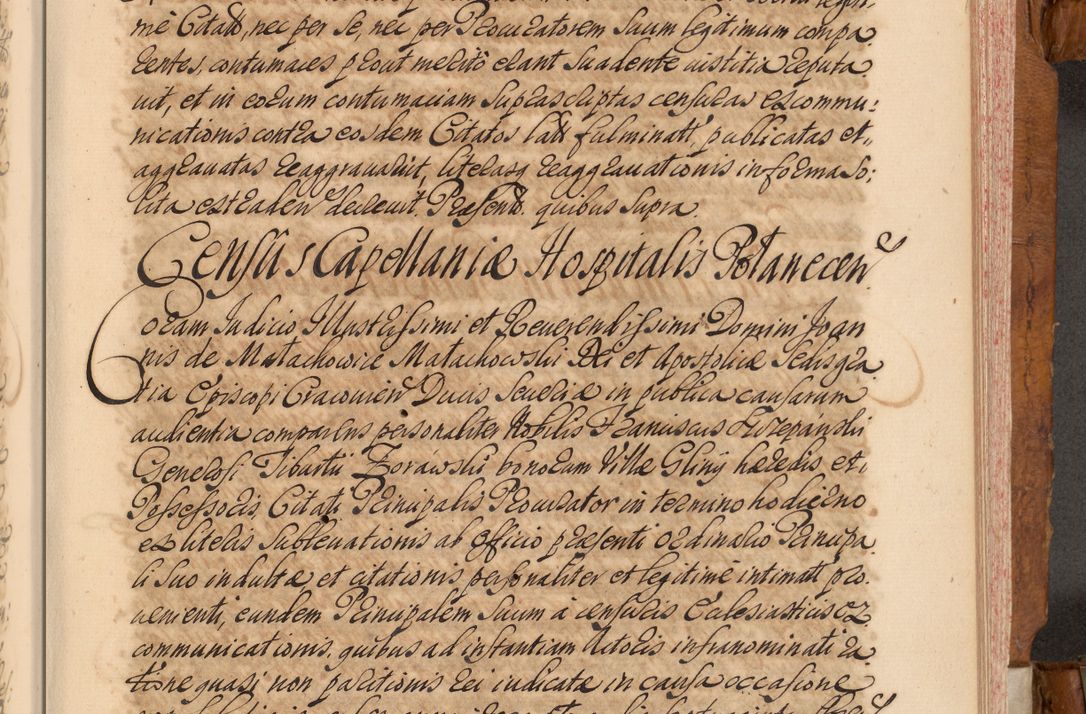 me Citatt, nec per se, nec per Procuratorem suum legitimum compa
rentes, contumaces prout merito erant suadente iustitia reputa
uit, et in eorum contumaciam suprascriptas censuras excommu:
nicationis contra eosdem Citatos latt fulminatt, publicatas et
aggrauatas reaggrauauit, literasq reaggrauationis in forma so:
lita extraden decreuit. Præsentt. quibus supra.
Censûs Capellaniæ Hospitalis Potanecen
Coram Iudicio Illustrissimi et Reuerendissimi Domini Joan
nis de Małachowice Małachowski Dei et Apostolicæ Sedis gra
tia Episcopi Cracouien Ducis Seueriæ in publica causarum
audientia comparens personaliter Nobilis Franciscus
Generosi Tiburtii Zorawski bonorum Villæ Gliny hæredis et
Possessoris Citati Principalis Procurator in termino hodierno
ex literis subleuationis ab officio præsenti ordinario Principa
li suo indultæ et citationis personaliter et legitimè intimatt pro
uenienti, eundem Principalem suum à censuris Ecclesiasticis ex
communicationis, quibus ad instantiam Actoris infranominati ra
tione quasi non paritionis rei iudicatæ in causa occasione